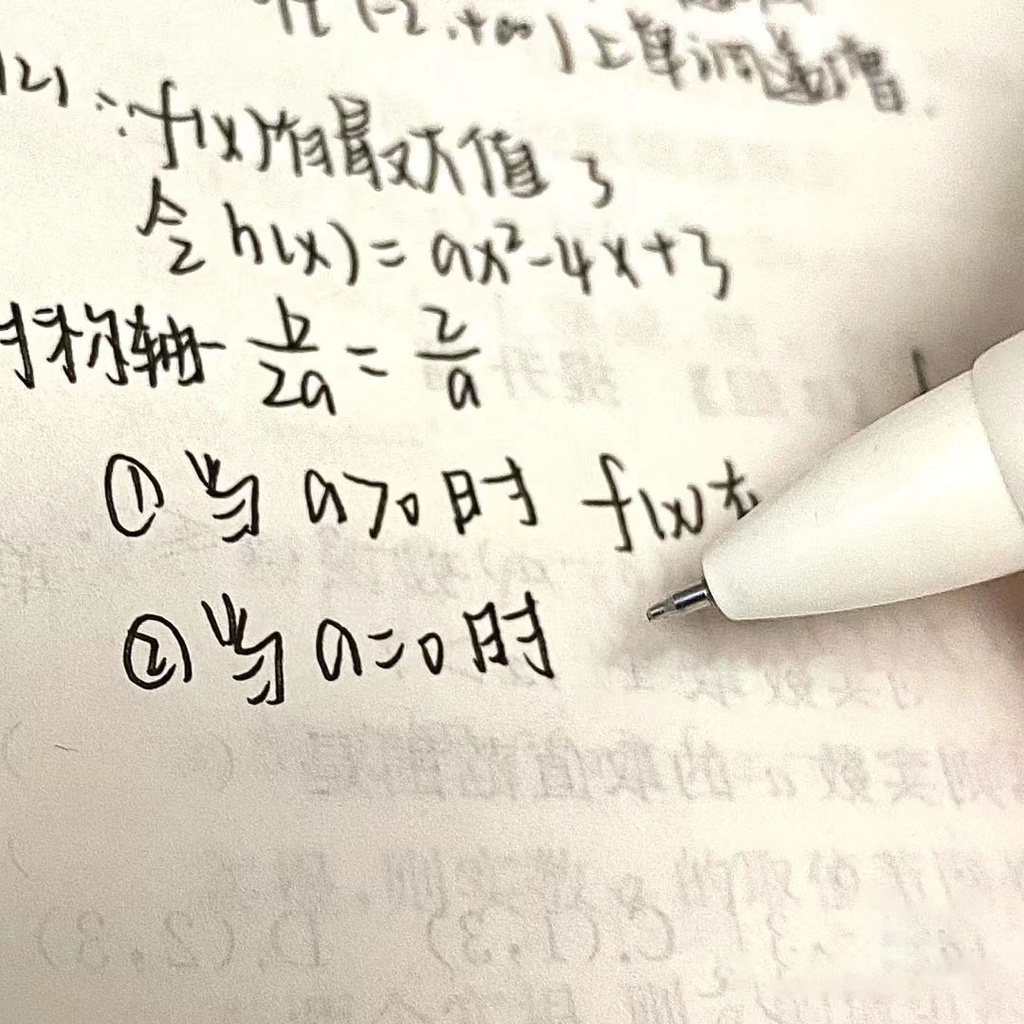 (-2,+∞)上单调递增
(2) ∵f(x)有最大值3
令h(x)=ax²-4x+3
对称轴-b/2a=2/a
①当a>0时 f(x)在
②当a=0时